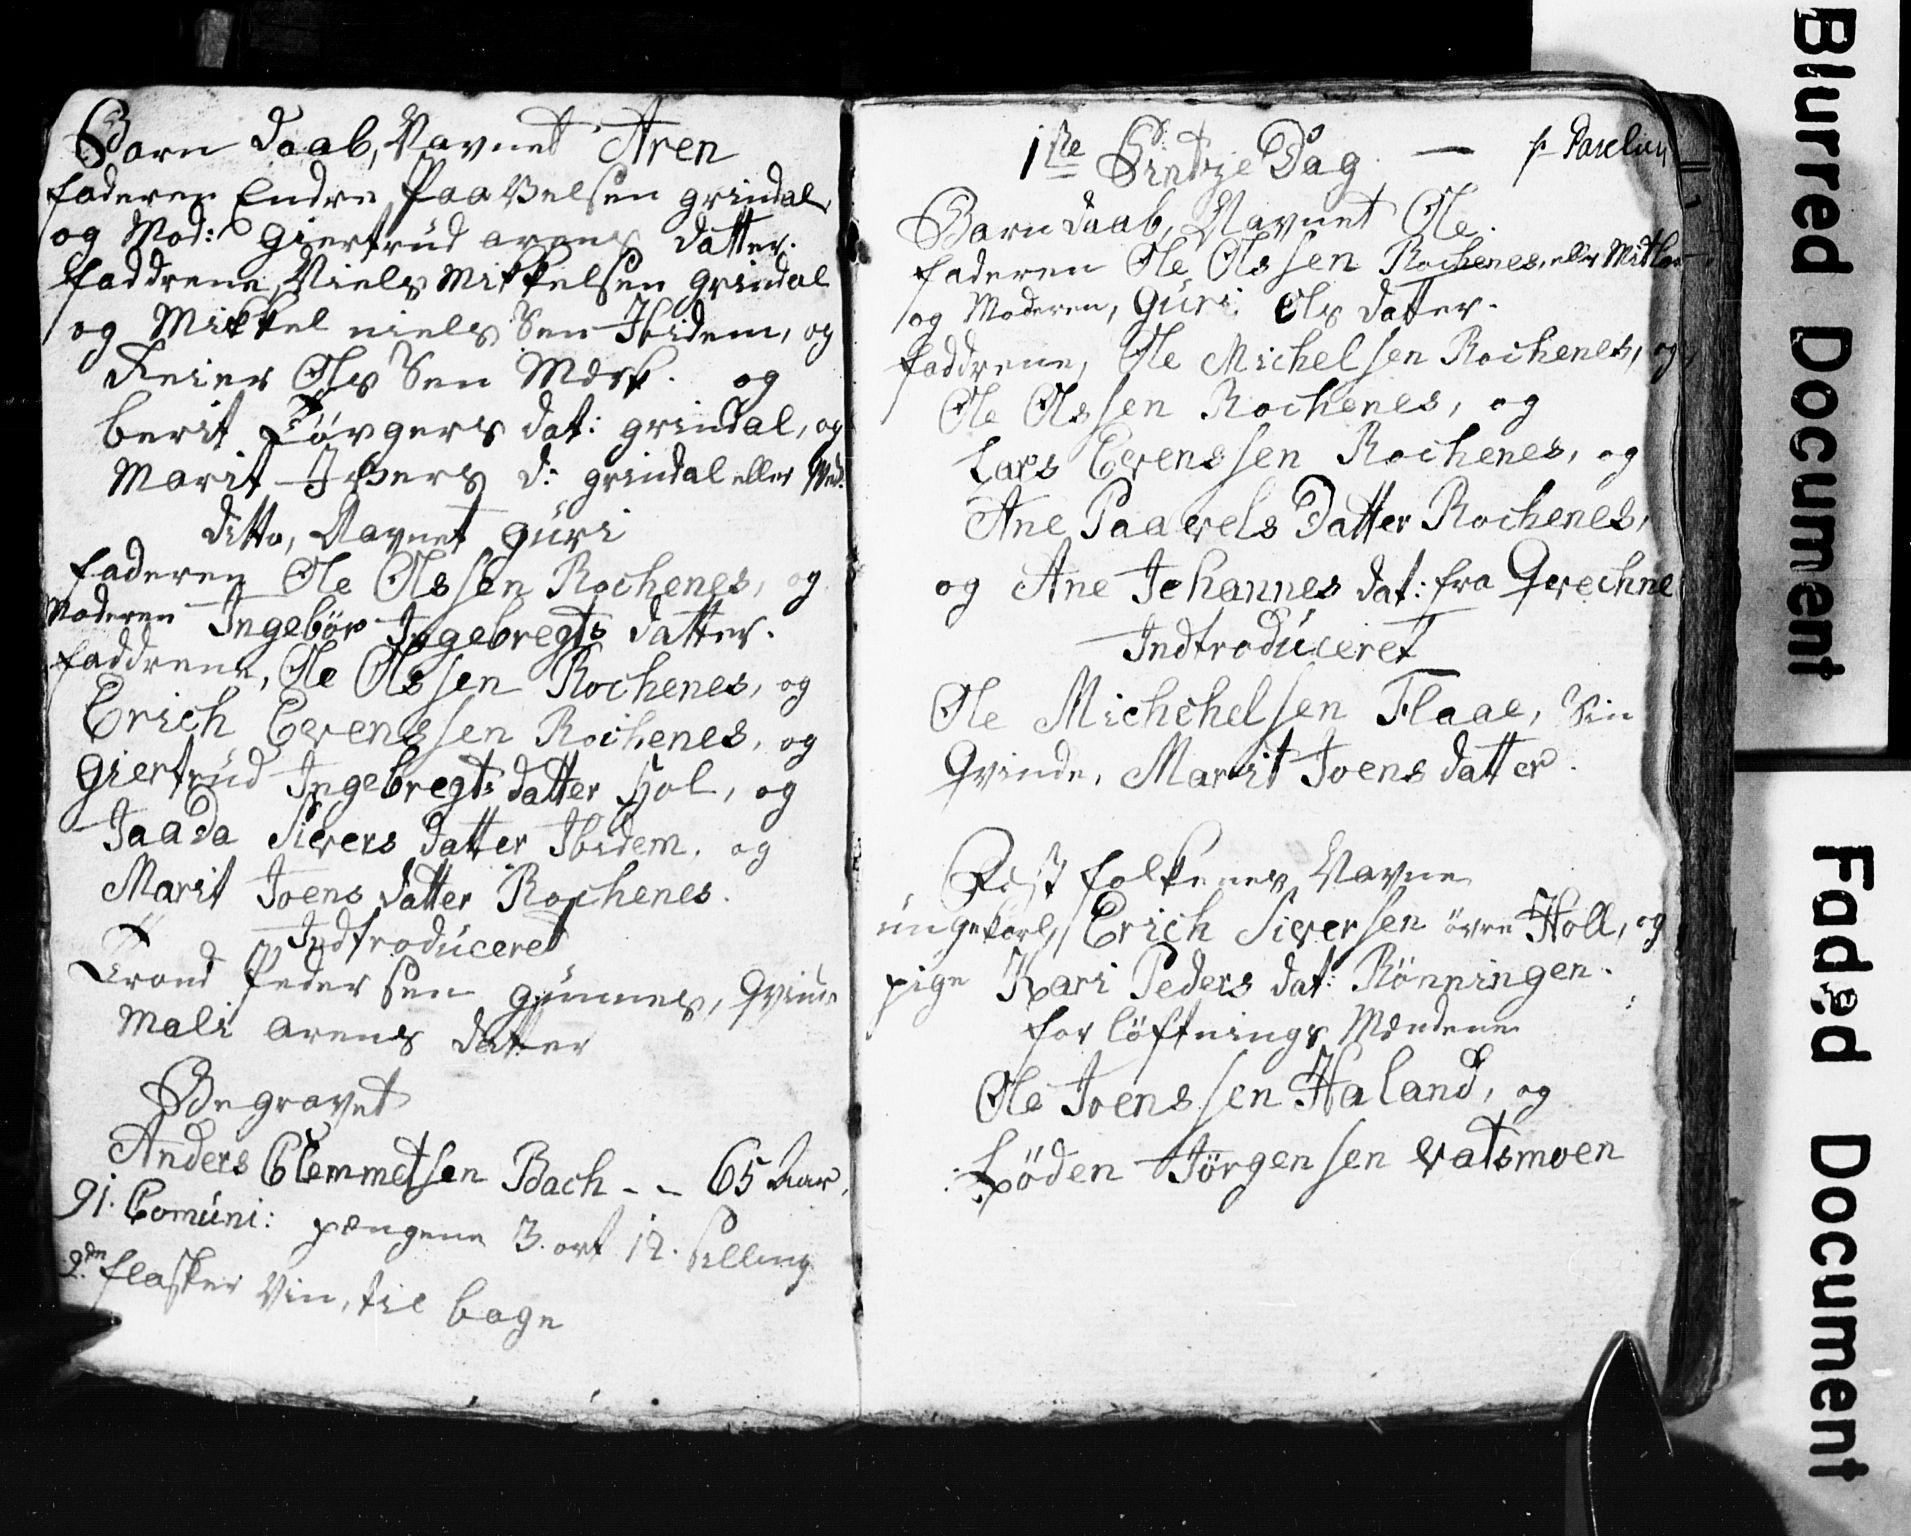 Barn Daab, Navnet Aren
faderen Endre Paavelsen grindal,
og Mod: Giertrud arens datter.
faddrene, Niels Mikkelsen grindal
og Mikkel niels Sen Ibidem, og
Reier Ols Sen Mærk. og
berit Jörgers dat: grindal, og
Marit Ivers d: grindal eller
ditto, Navnet Guri
faderen Ole Olssen Rochenes, og
Moderen Ingebör Ingebregts datter.
faddrene, Ole Olssen Rochenes, og
Erich Evenssen Rochenes, og
Giertrud Ingebregts datter Hol, og
Jaada Sivers datter Ibidem, og
Marit Joens datter Rochenes.
Indtroduceret
Trond Peder sen gunnes, Qvinde
Mali arens datter
Begravet
Anders Clemmetsen Bach -- 65 Aar,
91. Comuni: pengene 3. ort 12. skilling
2de flasker Vin, til bage
1ste Pintze Dag. —
Barn daab, Navnet Ole.
faderen Ole Olssen Rochenes, eller
og Moderen, Guri Ols datter.
faddrene, Ole Michelsen Rochenes, og
Ole Olssen Rochenes, og
Lars Evenssen Rochenes, og
Ane Paavels Datter Rochenes,
og Ane Johannes dat: fra Qvechne
Indtroduceret
Ole Michchelsen Flaae, Sin
Qvinde, Marit Joens datter.
Fest folkenes Navne
ungekarl, Erich Siversen övre Holl, og
pige Kari Peders dat: Rönningen.
for löftnings Mændene
Ole Joenssen Haland, og
Löden Jörgensen vatsmoen
Blurred Document
Faded Document